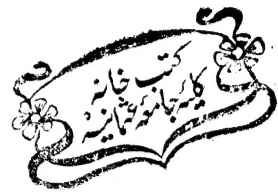 کتب خانہ
کلیہ جامعۂ عثمانیہ